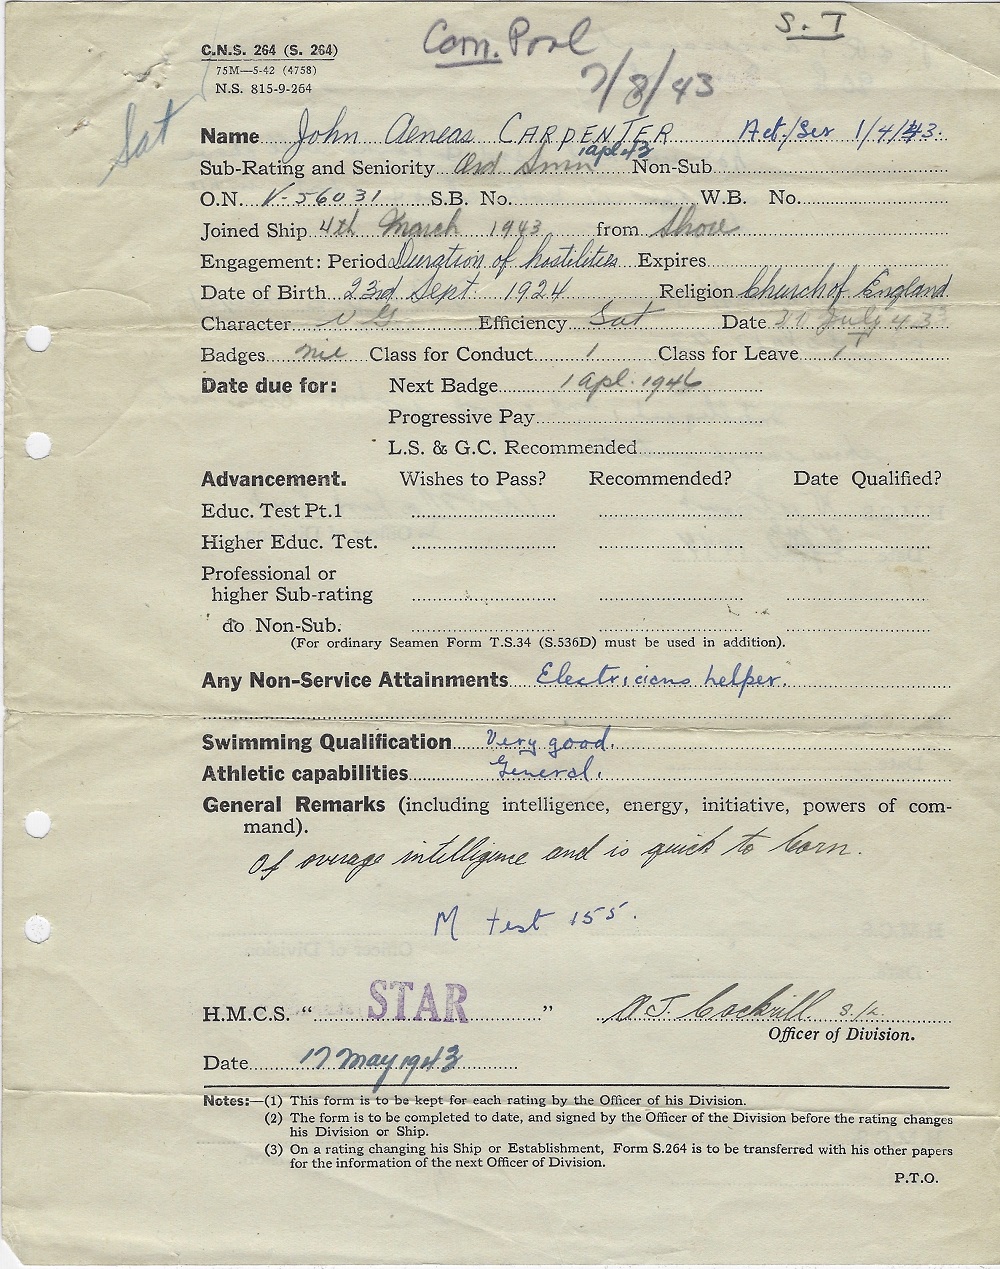 S. T
Com. Pool
7/8/43
C.N.S. 264 (S. 264)
75M—5-42 (4758)
N.S. 815-9-264
Sat
Name John Aeneas CARPENTER Act./Ser 1/4/43.
Sub-Rating and Seniority Ord Smn 1 apl 43 Non-Sub
O.N. V-56031 S.B. No. W.B. No.
Joined Ship 4th March 1943 from Shore
Engagement: Period Duration of hostilities Expires
Date of Birth 23rd Sept. 1924 Religion Church of England
Character VG Efficiency Sat Date 31 July 43
Badges nil Class for Conduct 1 Class for Leave 1
Date due for: Next Badge 1 apl. 1946
Progressive Pay
L.S. & G.C. Recommended
Advancement. Wishes to Pass? Recommended? Date Qualified?
Educ. Test Pt.1
Higher Educ. Test.
Professional or
higher Sub-rating
do Non-Sub.
(For ordinary Seamen Form T.S.34 (S.536D) must be used in addition).
Any Non-Service Attainments Electricians helper.
Swimming Qualification Very good.
Athletic capabilities General.
General Remarks (including intelligence, energy, initiative, powers of com-
mand).
Of average intelligence and is quick to learn.
M test 155.
H.M.C.S. “ STAR ” Cockrill
Officer of Division.
Date 17 May 1943
Notes:—(1) This form is to be kept for each rating by the Officer of his Division.
(2) The form is to be completed to date, and signed by the Officer of the Division before the rating changes
his Division or Ship.
(3) On a rating changing his Ship or Establishment, Form S.264 is to be transferred with his other papers
for the information of the next Officer of Division.
P.T.O.